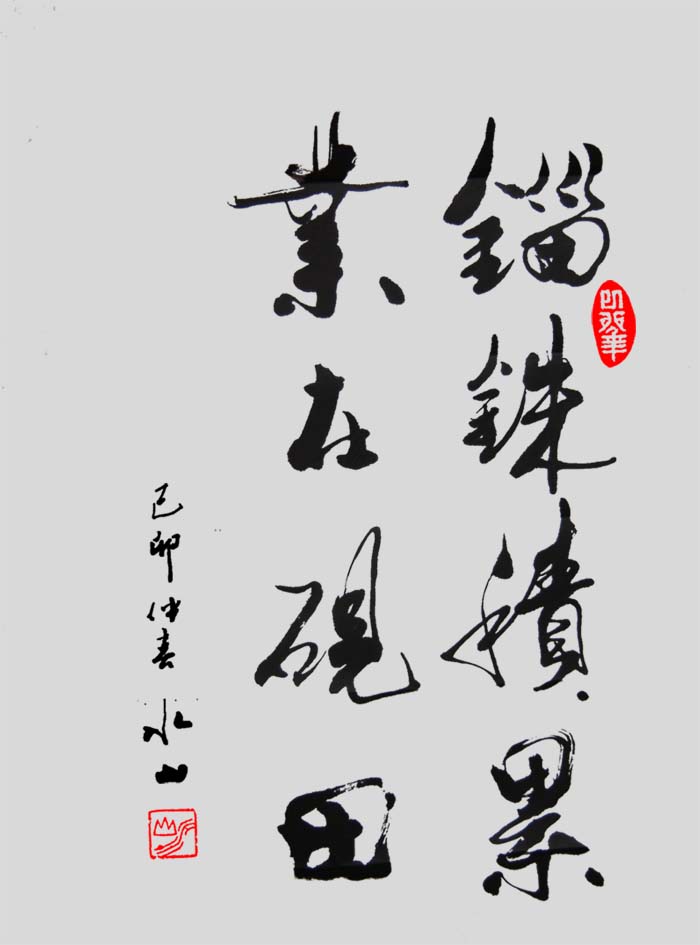 錙銖積累
業在硯田
己卯仲春 水山